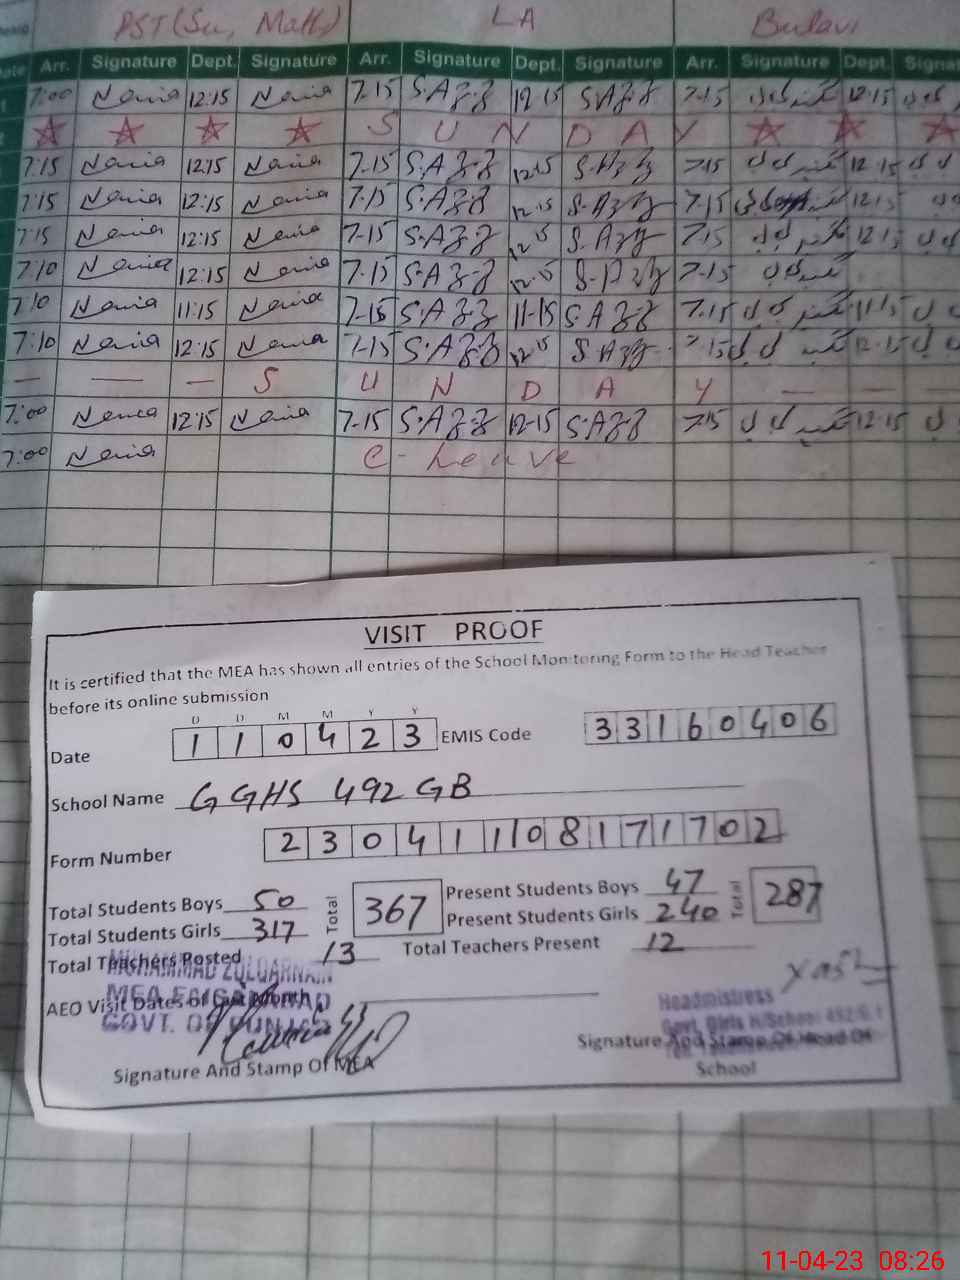 PST (Sci, Math) LA Bulavi
Date Arr. Signature Dept. Signature Arr. Signature Dept. Signature Arr. Signature Dept. Signat
7:00 Nania 12:15 Nania 7.15 S.AZZ 12-15 S.AZZ 7-15 12:15
S U N D A Y
7:15 Nania 12:15 Nania 7.15 S.AZZ 12-15 S.AZZ 7.15 12.15
7:15 Nania 12:15 Nania 7.15 S.AZZ 12-15 S.AZZ 7.15 12:15
7:15 Nania 12:15 Nania 7-15 S.AZZ 12-15 S.AZZ 7.15 12:15
7:10 Nania 12:15 Nania 7.15 S.AZZ 12-15 S.AZZ 7-15
7:10 Nania 11:15 Nania 7-15 S.AZZ 11-15 S.AZZ 7.15 11:15
7:10 Nania 12:15 Nania 7-15 S.AZZ 12-15 S.AZZ 7.15 12.15
— — — S U N D A Y — — —
7:00 Nania 12:15 Nania 7-15 S.AZZ 12-15 S.AZZ 7.15 12.15
7:00 Nania C-Leave
VISIT PROOF
It is certified that the MEA has shown all entries of the School Monitoring Form to the Head Teacher
before its online submission
D D M M Y Y
Date 1 1 0 4 2 3 EMIS Code 3 3 1 6 0 4 0 6
School Name GGHS 492 GB
Form Number 2 3 0 4 1 1 0 8 1 7 1 7 0 2
Total Students Boys 50 Total 367 Present Students Boys 47 Total 287
Total Students Girls 317 Present Students Girls 240
Total Teachers Posted 13 Total Teachers Present 12
MUHAMMAD ZULQARNAIN
AEO Visit Dates of Last Month
MEA FAISALABAD
GOVT. OF PUNJAB
Headmistress
Govt. Girls H/School 492/G.B
Signature And Stamp Of MEA
Signature And Stamp Of Head Of
School
11-04-23 08:26